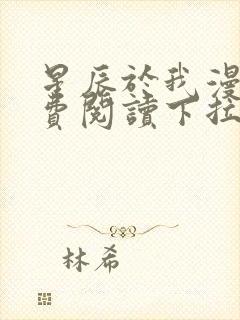 星辰於我漫
費閱讀下拉
林希